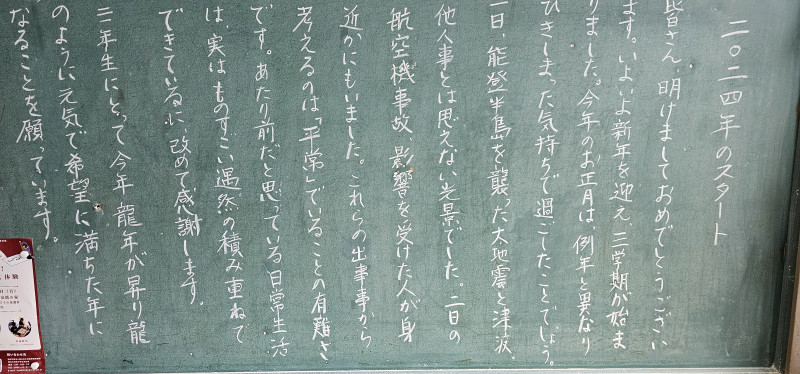 二〇二四年のスタート
皆さん、明けましておめでとうござい
ます。いよいよ新年を迎え、三学期が始ま
りました。今年のお正月は、例年と異なり
ひきしまった気持ちで過ごしたことでしょう。
一日、能登半島を襲った大地震と津波、
他人事とは思えない光景でした。二日の
航空機事故、影響を受けた人が身
近かにもいました。これらの出事事から
考えるのは「平常」でいることの有難さ
です。あたり前だと思っている日常生活
は、実はものすごい偶然の積み重ねで
できているに、改めて感謝します。
三年生にとって今年、龍年が昇り龍
のように元気で希望に満ちた年に
なることを願っています。
体験